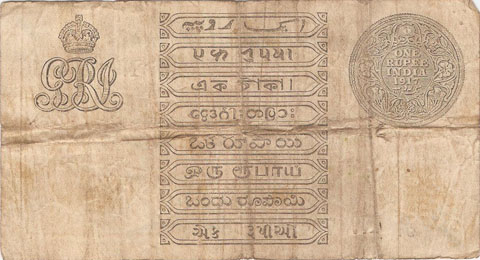 GRI
ایک روپیہ
एक रुपया
এক টাকা।
ఒక రూపాయి
ஒரு ரூபாய்
ಒಂದು ರೂಪಾಯಿ
એક રૂપીઓ
ONE
RUPEE
INDIA
1917